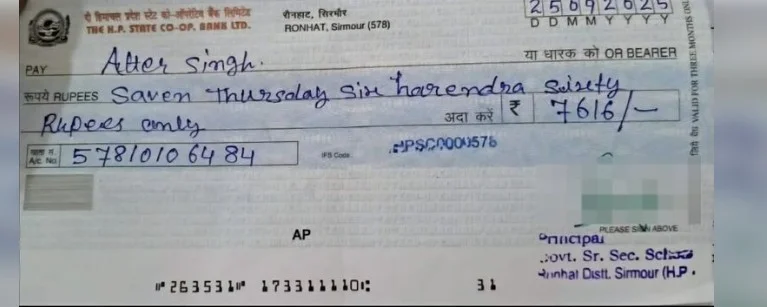 दी हिमाचल प्रदेश स्टेट को-ऑपरेटिव बैंक लिमिटेड
THE H.P. STATE CO-OP. BANK LTD.
रौनहाट, सिरमौर
RONHAT, Sirmour (578)
25092025
D D M M Y Y Y Y
PAY Atter Singh. या धारक को OR BEARER
रूपये RUPEES Saven Thursday Six harendra Sixty
Rupees only अदा करें ₹ 7616/-
खाता नं. A/c. No. 57810106484 IFS Code HPSC0000576
VALID FOR THREE MONTHS ONLY
AP
PLEASE SIGN ABOVE
Principal
Govt. Sr. Sec. School
Ronhat Distt. Sirmour (H.P.
⑈263531⑈ 173311110⑆ 31